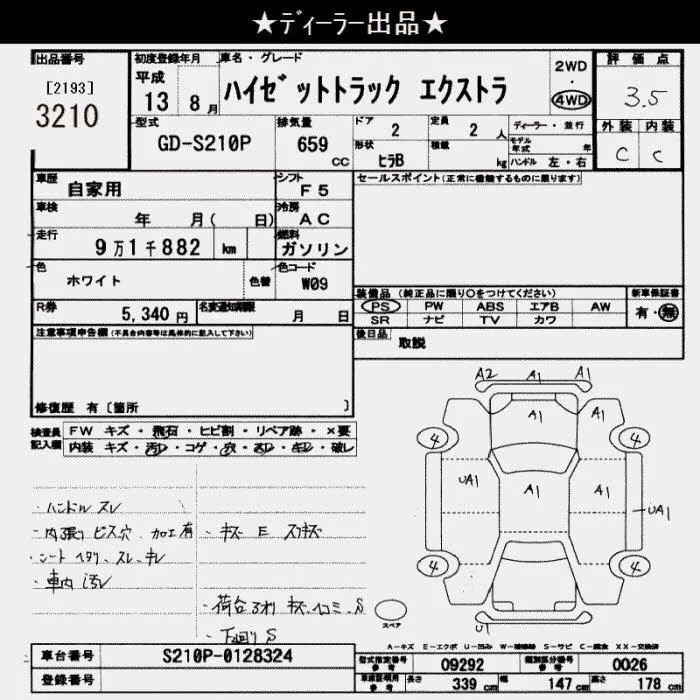 ★ディーラー出品★
出品番号
[2193]
3210
初度登録年月
平成
13 8月
車名・グレード
ハイゼットトラック エクストラ
2WD
・
4WD
評価点
3.5
外装 内装
C C
型式
GD-S210P
排気量
659
CC
ドア
2
定員
2人
形状
ヒラB
積載
kg
ディーラー・並行
モデル年式 年
ハンドル 左・右
車歴
自家用
シフト
F5
車検
年 月( 日)
冷房
AC
走行
9万1千882 km
燃料
ガソリン
色
ホワイト
色替
色コード
W09
R券
5,340円
名変通知期限
月 日
セールスポイント(正常に機能するものに限ります)
装備品 (純正品に限り〇をつけてください)
PS PW ABS エアB AW
SR ナビ TV カワ
新車保証書
有・無
後日品
取説
注意事項申告欄(不具合内容等は具体的に記入して下さい)
修復歴 有[箇所 ]
検査員記入欄
FW キズ・飛石・ヒビ割・リペア跡・×要
内装 キズ・汚レ・コゲ・穴・スレ・キレ・破レ
・ハンドル スレ
・内張り ビス穴 加工有
・シート ヘタリ、スレ、キレ
・車内 汚レ
・キズ E スリキズ
・荷台アオリ キズ ヘコミ S
・下回り S
A2 A1 A1
A1
4 4
UA1 A1 A1 UA1
4 4
U1
スペア
A-キズ E-エクボ U-凹み W-補修跡 S-サビ C-腐食 XX-交換済
車台番号
S210P-0128324
登録番号
型式指定番号
参考
09292
類別区分番号
参考
0026
車庫証明用
参考
長さ 339cm
幅 147cm
高さ 178cm